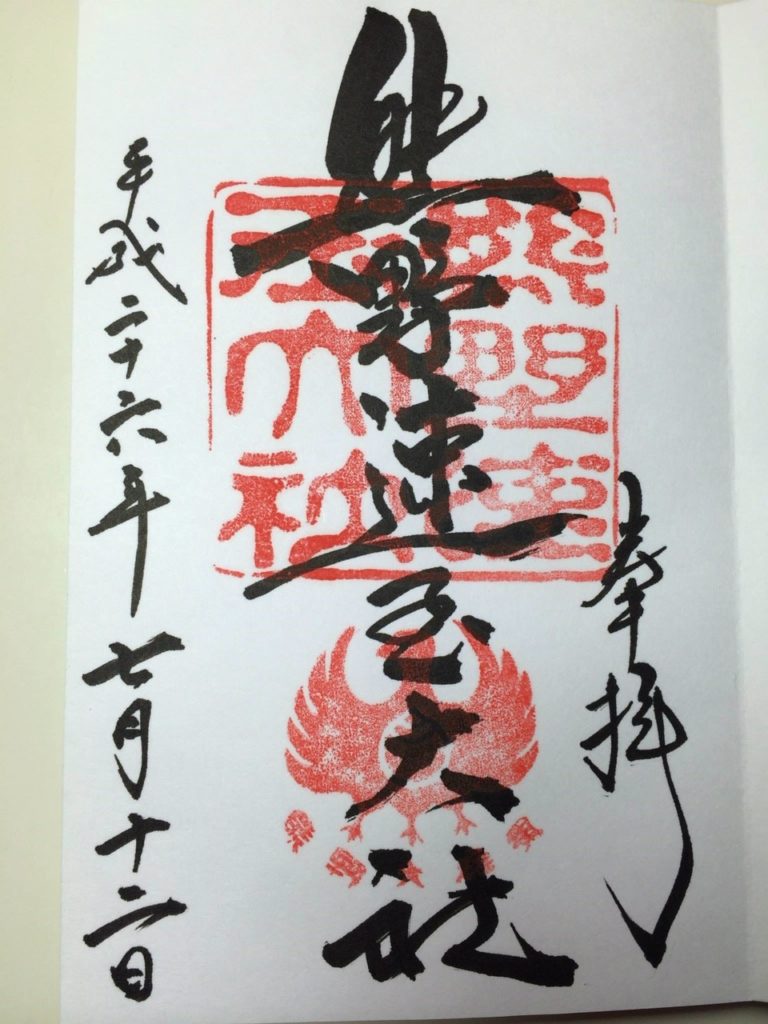 奉拝
熊野速玉大社
熊野速
玉大社
平成二十六年七月十二日